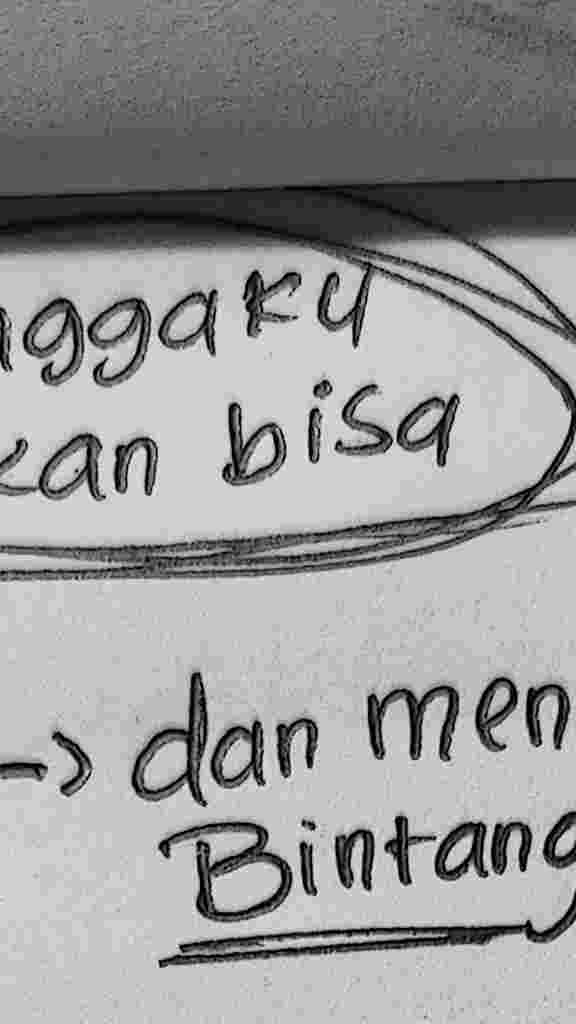 nggaku
kan bisa
-> dan men
Bintang